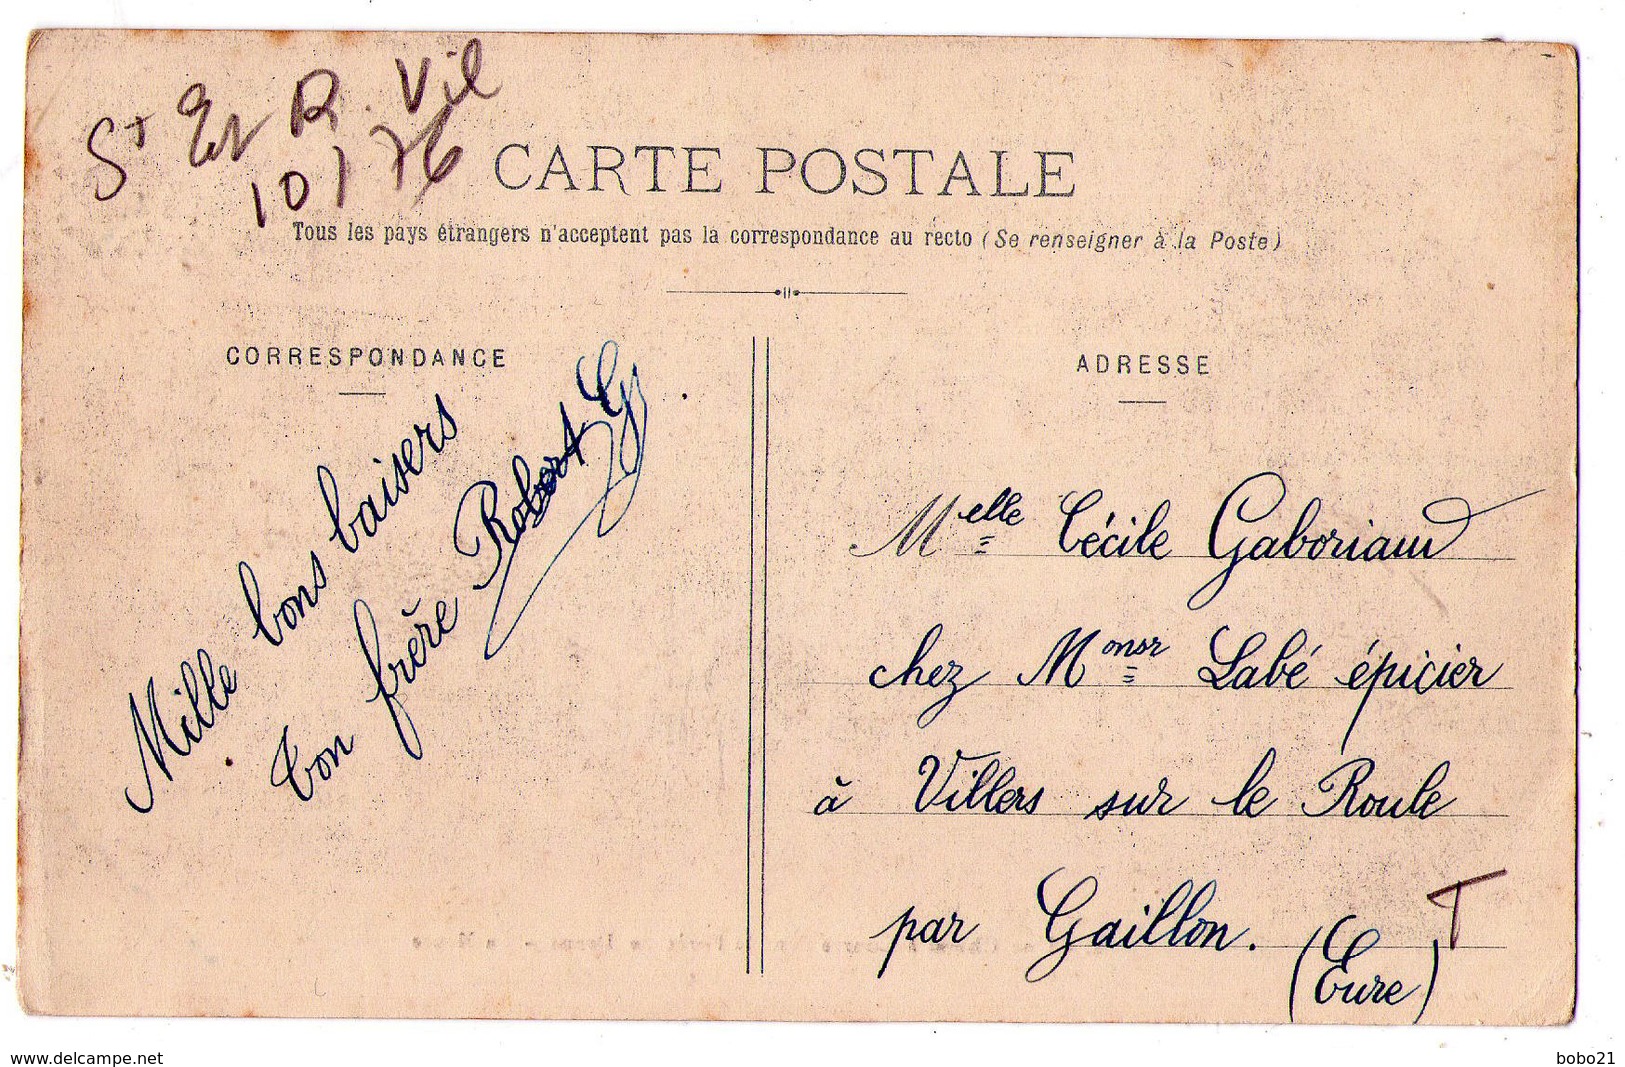 St Et R. Vil
10 / 76
CARTE POSTALE
Tous les pays étrangers n'acceptent pas la correspondance au recto (Se renseigner à la Poste)
CORRESPONDANCE
Mille bons baisers
Ton frère Robert G
ADRESSE
Melle Cécile Gaboriaud
chez Monsr Labé épicier
à Villers sur le Roule
par Gaillon.
(Eure)
T
www.delcampe.net
bobo21